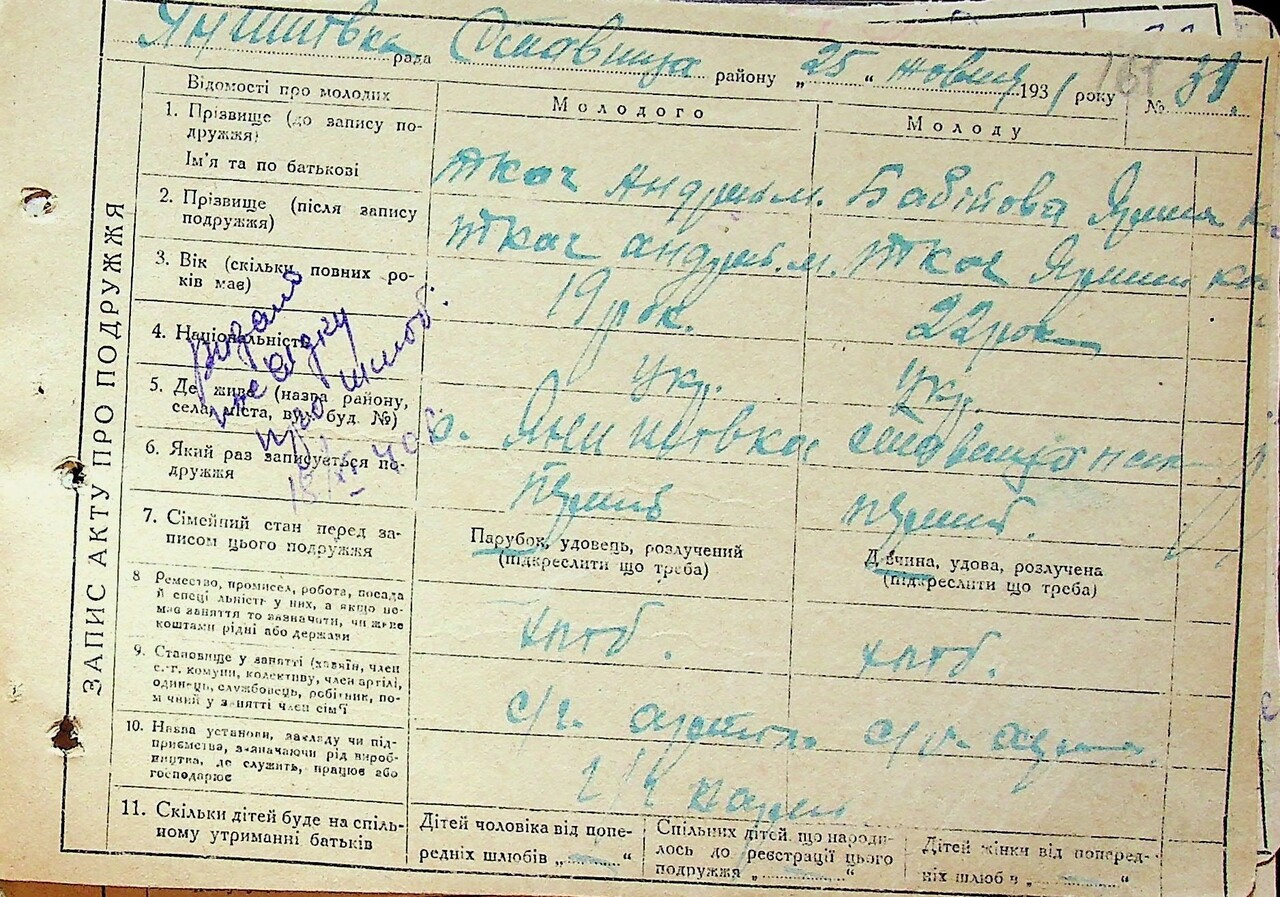 рада Ставища району „25“ жовтня 1931 року № 31.
ЗАПИС АКТУ ПРО ПОДРУЖЖЯ
Відомості про молодих
Молодого
Молоду
1. Прізвище (до запису по-
дружжя)
Ім'я та по батькові
Ткач Андрій м.
Бабійова
2. Прізвище (після запису
подружжя)
Ткач Андрій. м.
Ткач
3. Вік (скільки повних ро-
ків має)
19 рок.
22 рок
4. Національність
укр.
укр.
5. Де живе (назва району,
села, міста, вул. буд. №)
6. Який раз записується по-
дружжя
перший
перший.
7. Сімейний стан перед за-
писом цього подружжя
Парубок, удовець, розлучений
(підкреслити що треба)
Дівчина, удова, розлучена
(підкреслити що треба)
8 Ремество, промисел, робота, посада
й спеціальність у них, а якщо не-
має заняття то зазначити, чи живе
коштами рідні або держави
хліб.
хліб.
9. Становище у занятті (хазяїн, член
с.-г. комуни, колективу, член артілі,
одинець, службовець, робітник, по-
мічний у занятті член сім'ї
с/г. артіл.
с/г. артіл.
10. Назва установи, закладу чи під-
приємства, зазначаючи рід вироб-
ництва, де служить, працює або
господарює
11. Скільки дітей буде на спіль-
ному утриманні батьків
Дітей чоловіка від попе-
редніх шлюбів „ “
Спільних дітей, що народи-
лось до реєстрації цього
подружжя „ “
Дітей жінки від поперед-
ніх шлюбів „ “
видано
про шлюб.